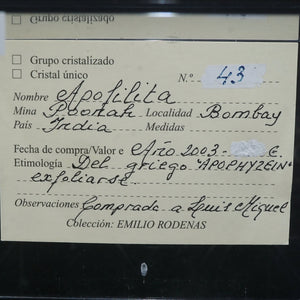 Grupo cristalizado
☐ Grupo cristalizado
☐ Cristal único
N.º 43
Nombre Apofilita
Mina Poonah Localidad Bombay
País India Medidas
Fecha de compra/Valor e Año 2003- €.
Etimología Del griego "APOPHYZEIN"
exfoliarse.
Observaciones Comprada a Luis Miguel
Colección: EMILIO RODENAS